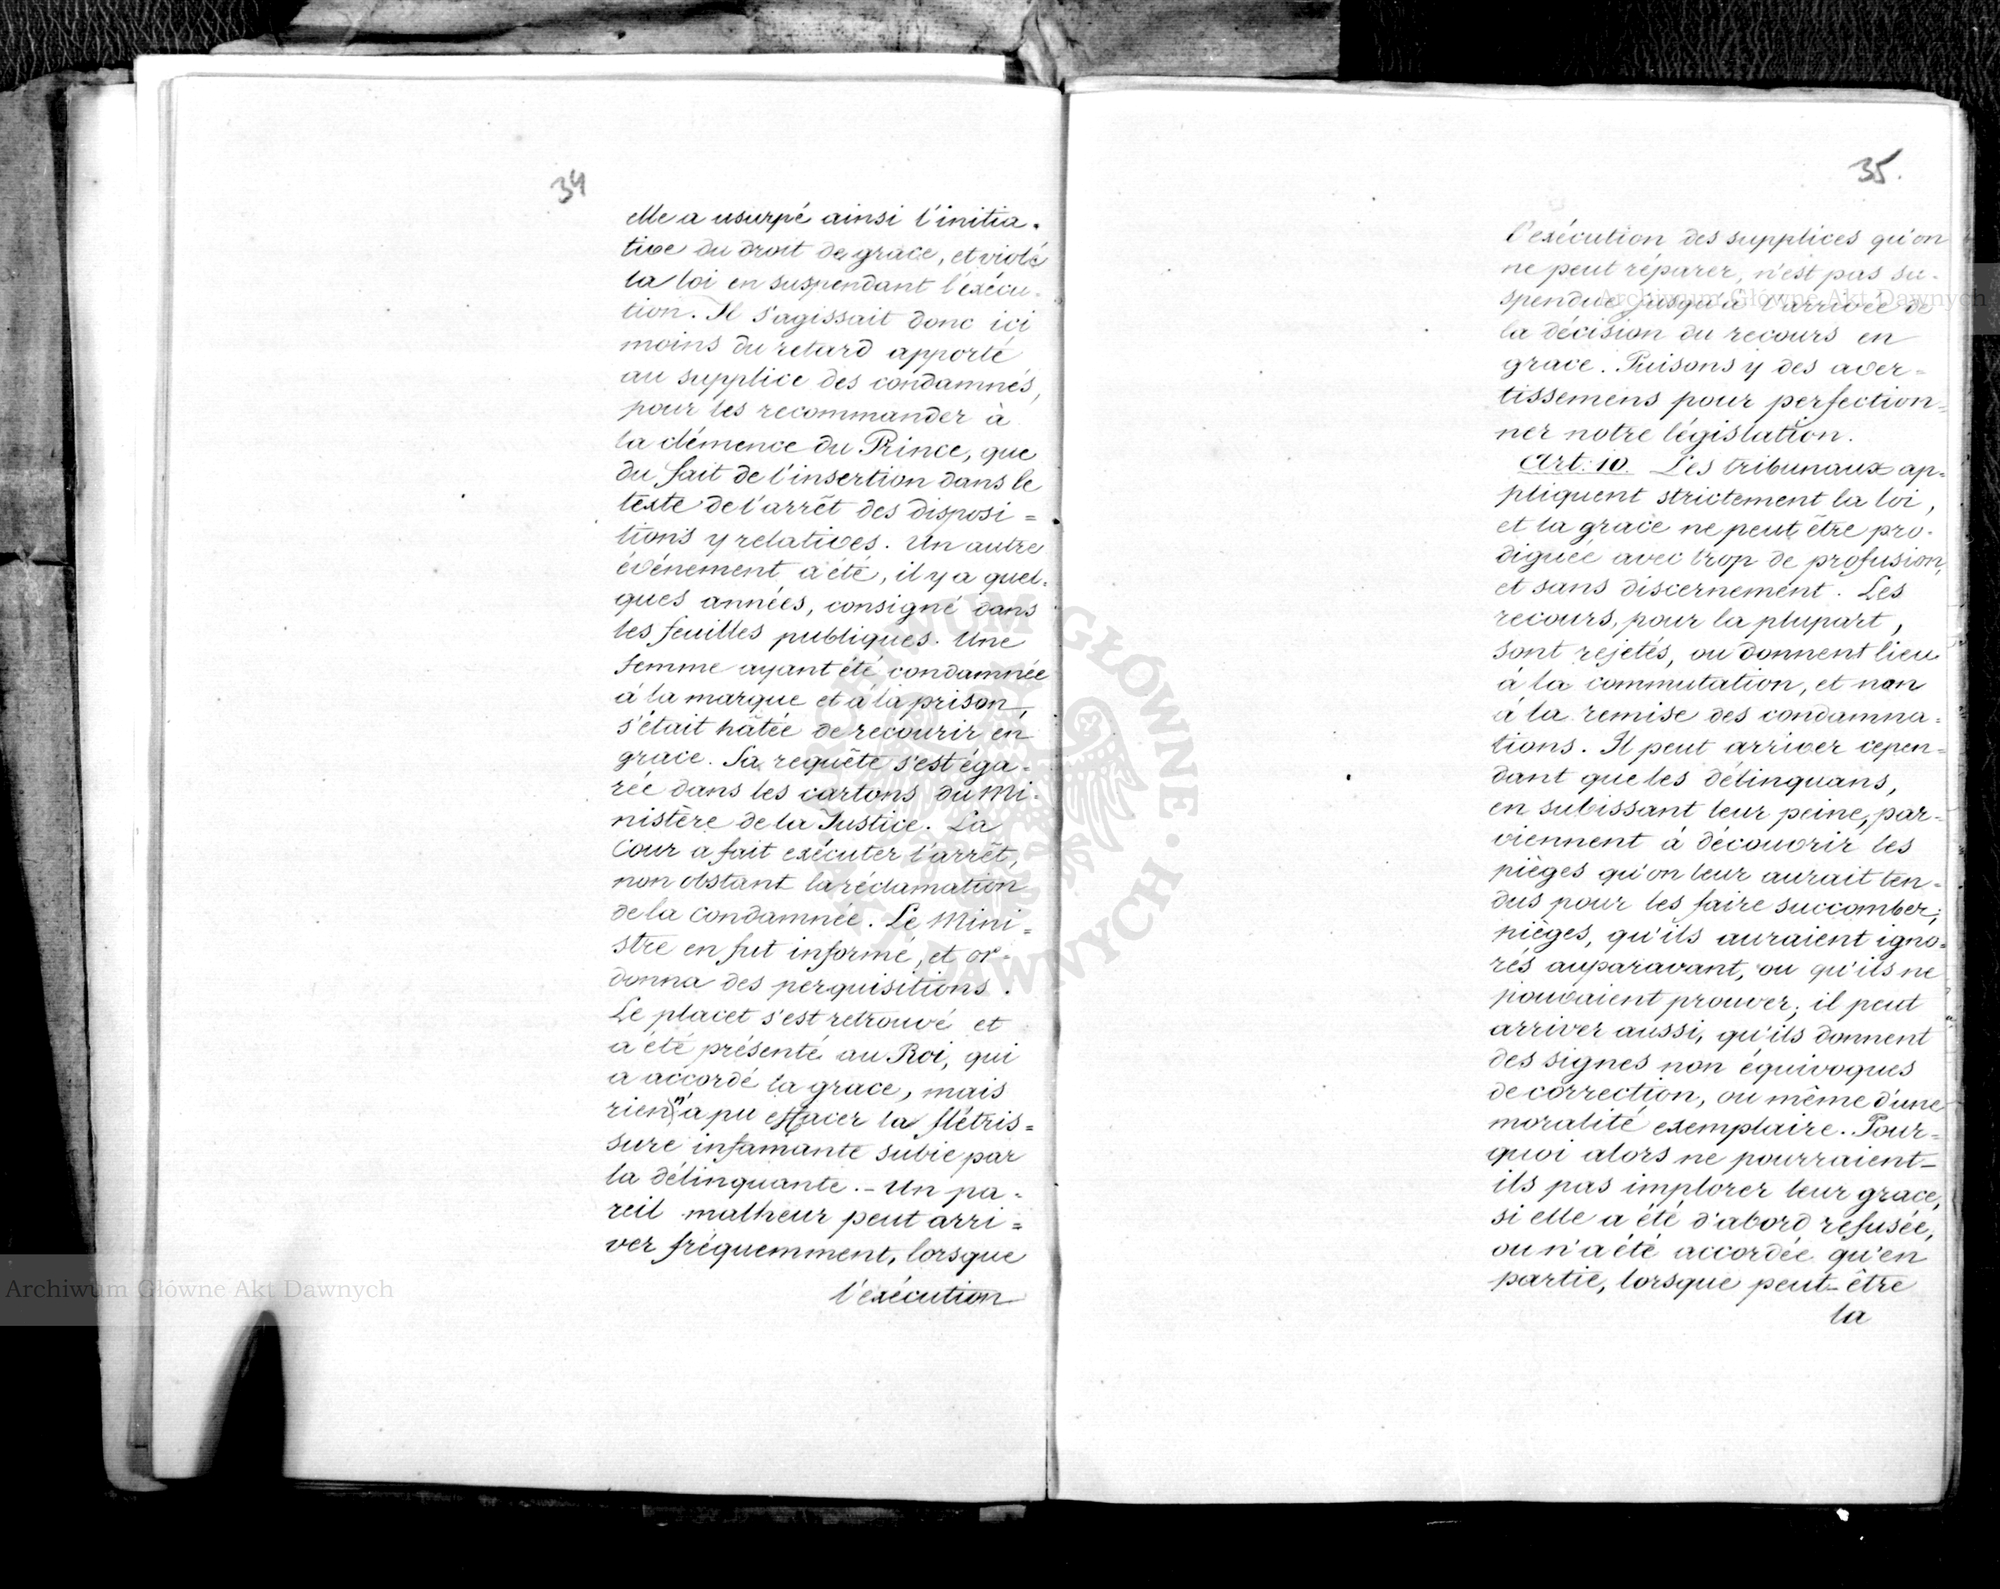 34
elle a usurpé ainsi l'initia-
tive du droit de grace, et violé
la loi en suspendant l'exécu-
tion. Il s'agissait donc ici
moins du retard apporté
au supplice des condamnés,
pour les recommander à
la clémence du Prince, que
du fait de l'insertion dans le
texte de l'arrêt des disposi=
tions y relatives. Un autre
événement a été, il y a quel-
ques années, consigné dans
les feuilles publiques. Une
femme ayant été condamnée
á la marque et á la prison,
s'était hâtée de recourir en
grace. Sa requête s'est éga-
rée dans les cartons du Mi-
nistère de la Justice. La
Cour a fait exécuter l'arrêt,
non obstant la réclamation
de la Condamnée. Le Mini=
stre en fut informé, et or-
donna des perquisitions.
Le placet s'est retrouvé et
a été présenté au Roi, qui
a accordé la grace, mais
rien n'a pu effacer la flétris=
sure infamante subie par
la délinquante. – Un pa-
reil malheur peut arri=
ver fréquemment, lorsque
l'exécution
35.
l'exécution des supplices qu'on
ne peut réparer, n'est pas su-
spendue jusqu'à l'arrivée de
la décision du recours en
grace. Puisons y des aver=
tissemens pour perfection=
ner notre législation.
Art: 10. Les tribunaux ap=
pliquent strictement la loi,
et la grace ne peut être pro-
diguée avec trop de profusion,
et sans discernement. Les
recours, pour la plupart,
sont rejetés, ou donnent lieu
á la commutation, et non
á la remise des condamna=
tions. Il peut arriver cepen=
dant que les délinquans,
en subissant leur peine, par-
viennent á découvrir les
pièges qu'on leur aurait ten-
dus pour les faire succomber;
pièges, qu'ils auraient igno=
rés auparavant, ou qu'ils ne
pouvaient prouver; il peut
arriver aussi, qu'ils donnent
des signes non équivoques
de correction, ou même d'une
moralité exemplaire. Pour=
quoi alors ne pourraient-
ils pas implorer leur grace,
si elle a été d'abord refusée,
ou n'a été accordée qu'en
partie, lorsque peut-être
la
Archiwum Główne Akt Dawnych
Archiwum Główne Akt Dawnych
ARCHIWUM GŁÓWNE · AKT DAWNYCH ·